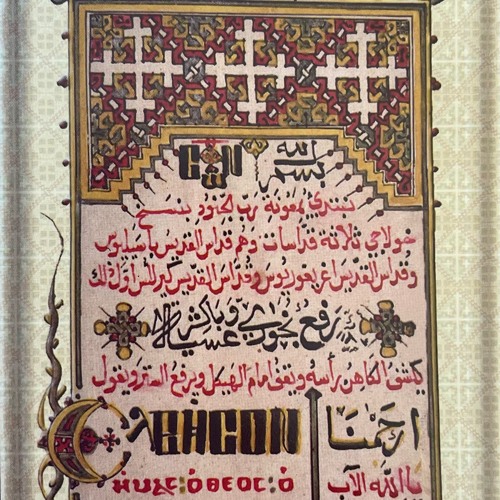 بسم الله
نبتدي بمعونة رب الجنود بنسخ
خولاجي ثلاثة قداسات وهم قداس القديس باسيليوس
وقداس القديس اغريغوريوس وقداس القديس كيرلس اول ذلك
رفع بخور عشية وباكر
يكشف الكاهن راسه ويقف امام الهيكل ويرفع الستر ويقول
ⲈⲖⲈⲎⲤⲞⲚ ارحمنا
ⲎⲘⲀⲤ:ⲞⲐⲈⲞⲤ:Ⲟ ياالله الآب